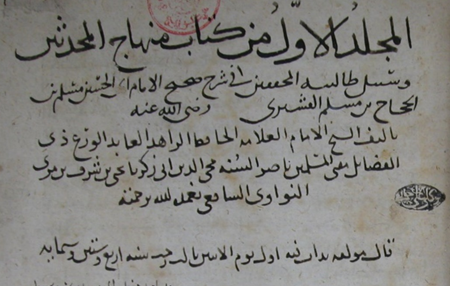 المجلد الاول من كتاب منهاج المحدثين
وسبيل طالبيه المحققين في شرح صحيح الامام ابي الحسين مسلم بن
الحجاج بن مسلم القشيري رضي الله عنه
تاليف الشيخ الامام العلامه الحافظ الزاهد العابد الورع ذي
الفضايل مفتي المسلمين ناصر السنه محي الدين ابي زكريا يحيى بن شرف بن مري
النواوي الشافعي تغمده الله برحمته
قال مولفه بدات فيه اول يوم الاثنين رجب سنه اربع وستين وستمايه